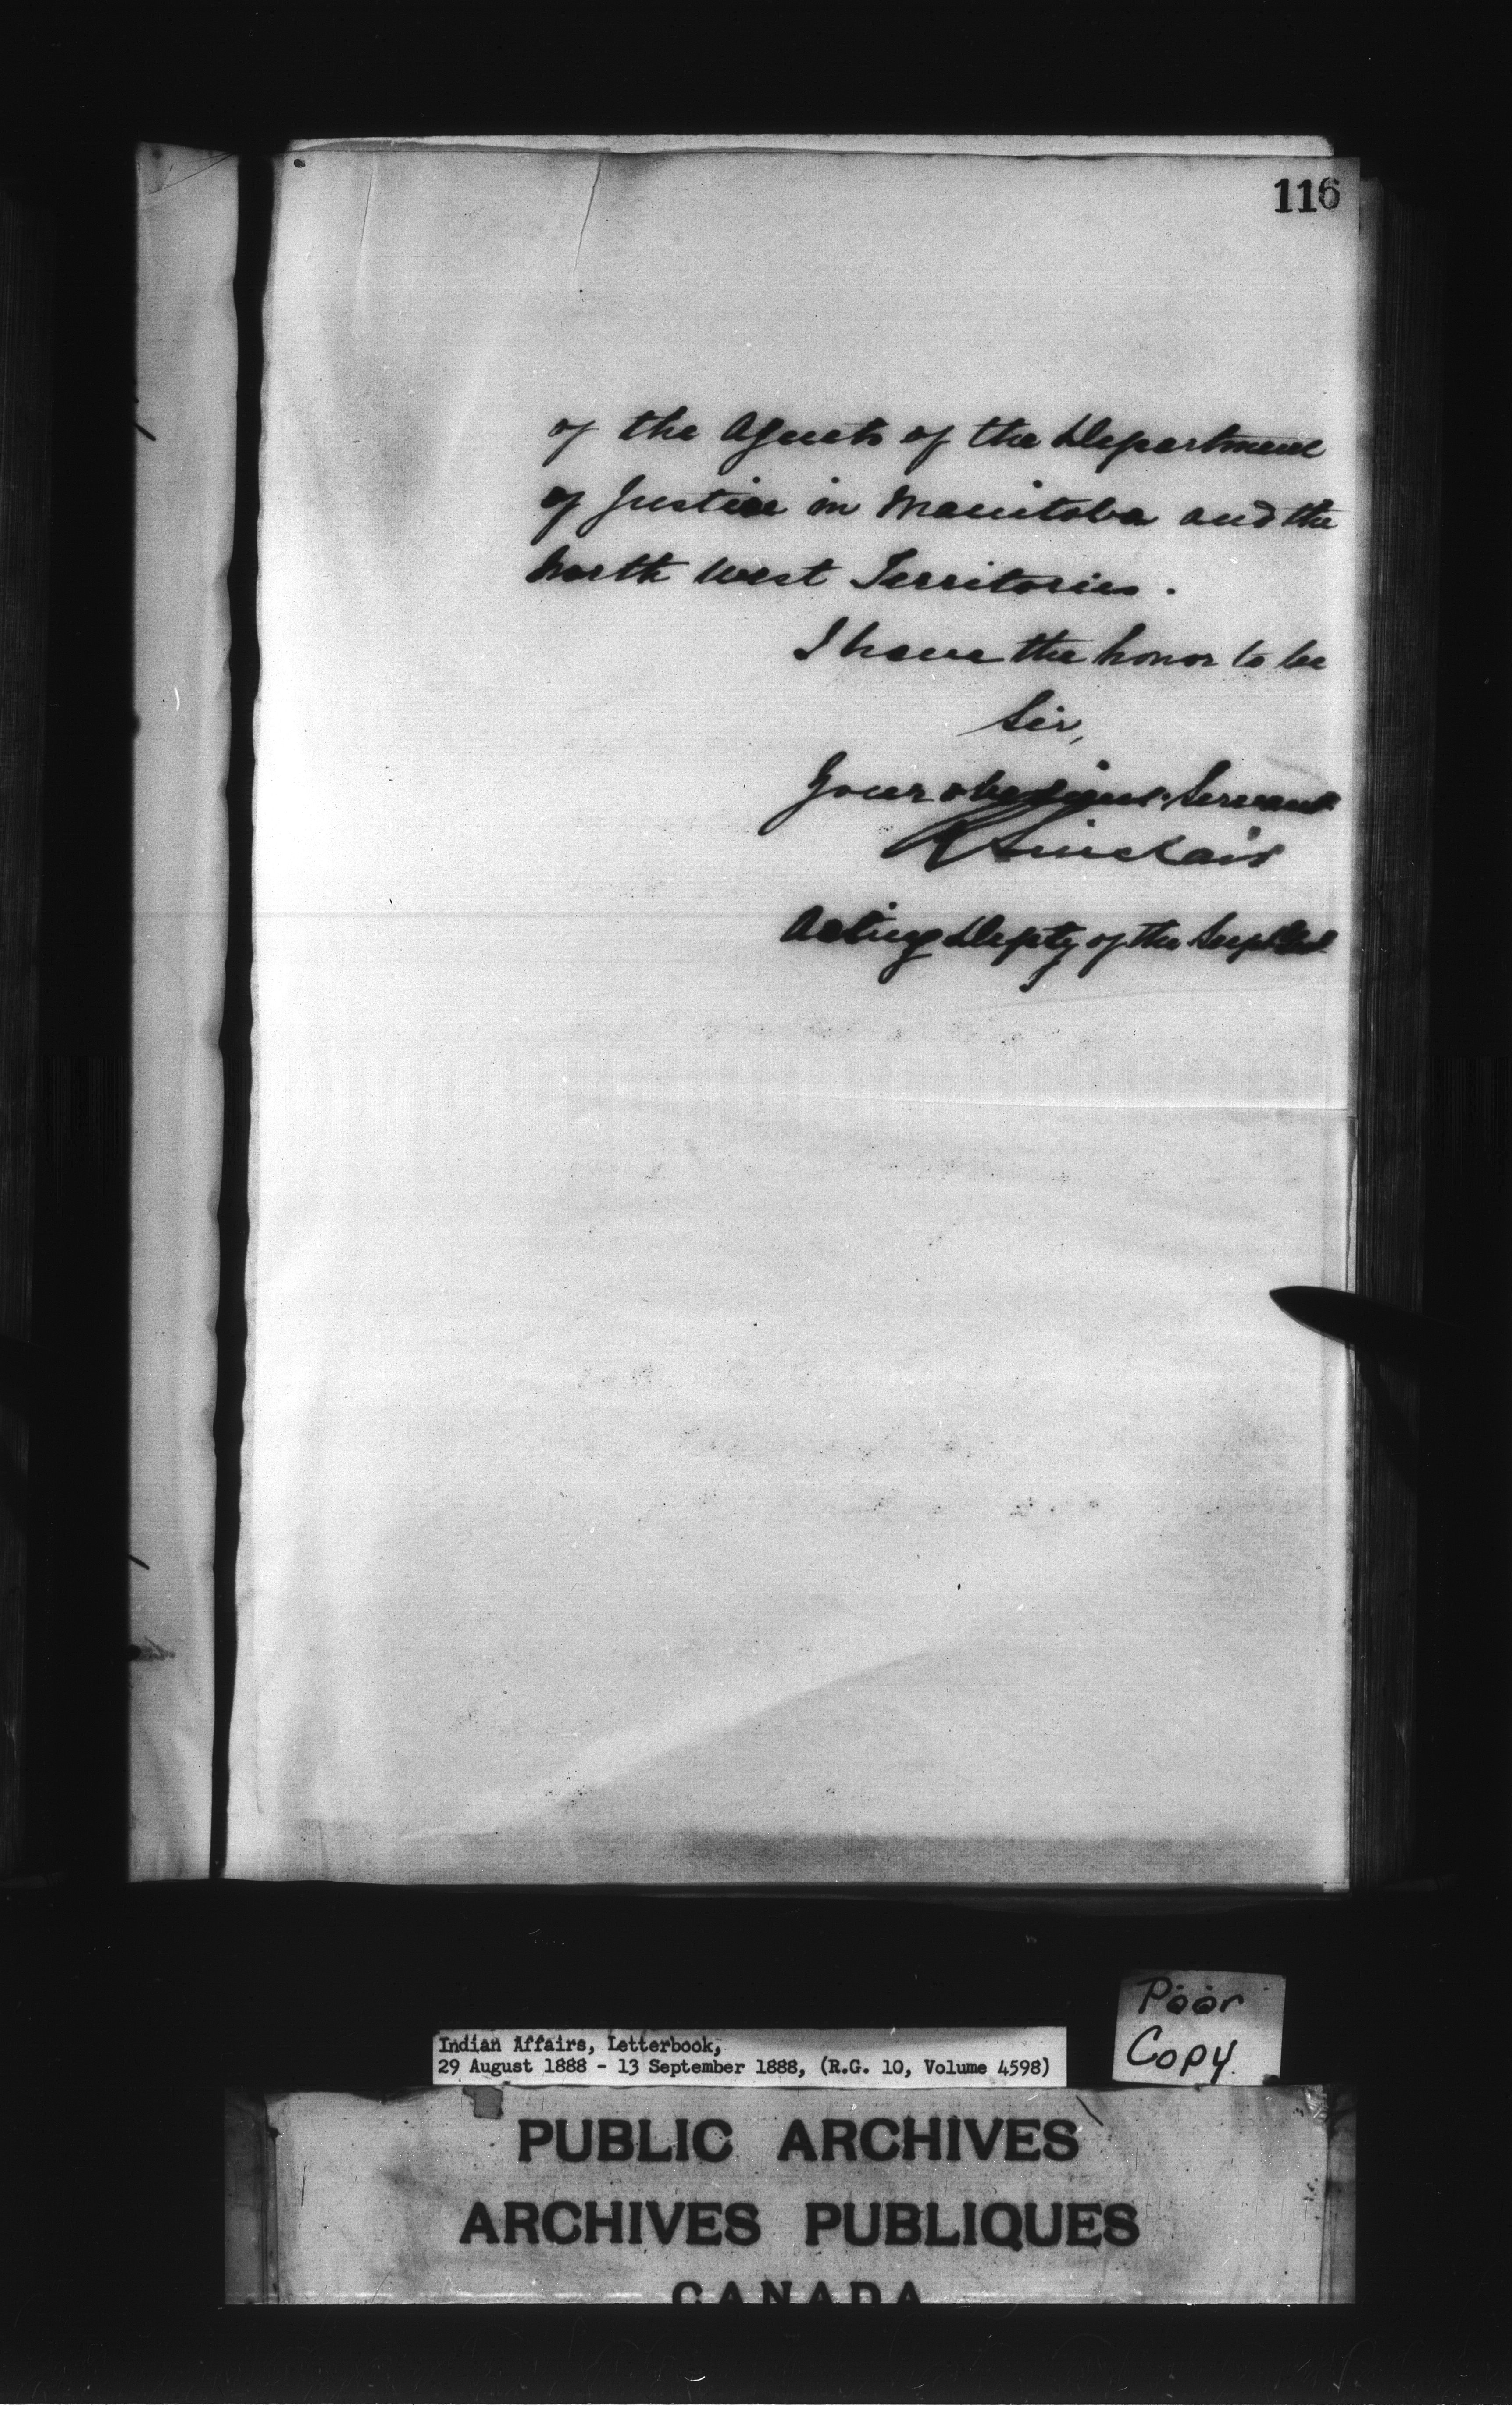 116
of the Agents of the Department
of Justice in Manitoba and the
North West Territories.
I have the honor to be
Sir,
Your obedient Servant
R Sinclair
Acting Depty of the Supt
Poor
Copy.
Indian Affairs, Letterbook,
29 August 1888 - 13 September 1888, (R.G. 10, Volume 4598)
PUBLIC ARCHIVES
ARCHIVES PUBLIQUES
CANADA